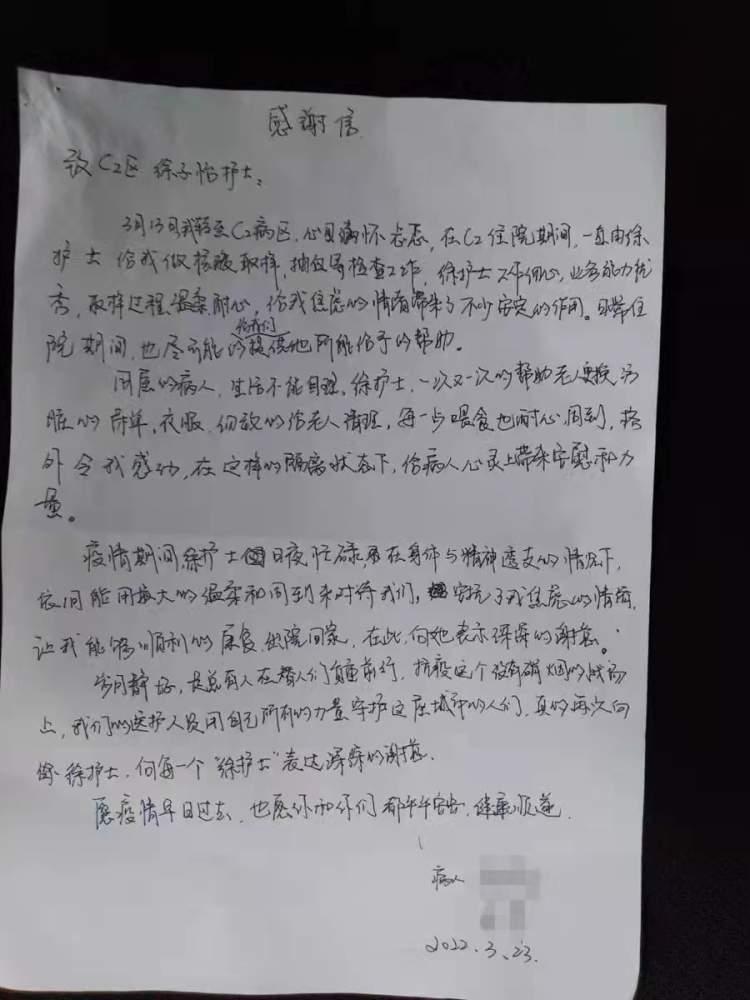 感谢信
致C2区 徐子怡护士：
3月13日我转至C2病区，心目满怀忐忑，在C2住院期间，一直由徐
护士给我做核酸取样，抽血等检查工作，徐护士工作细心，业务能力优
秀，取样过程温柔耐心，给我焦虑的情绪带来了不少安定的作用。日常住
给我们
院期间，也尽可能的提供她所能给予的帮助。
同屋的病人，生活不能自理，徐护士，一次又一次的帮助老人更换污
脏的床单，衣服，细致的给老人清理，每一步喂食也耐心周到，格
外令我感动，在这样的隔离状态下，给病人心灵上带来安慰和力
量。
疫情期间，徐护士日夜忙碌，在身体与精神透支的情况下，
依旧能用最大的温柔和周到来对待我们，安抚了我焦虑的情绪，
让我能够顺利的康复，出院回家，在此，向她表示深深的谢意。
岁月静好，是总有人在替人们负重前行，抗疫这个没有硝烟的战场
上，我们的医护人员用自己所有的力量守护这座城市的人们，真的再次向
徐护士，向每一个“徐护士”表达深深的谢意。
愿疫情早日过去，也愿你和你们都平平安安，健康顺遂。
病人
2022.3.23.